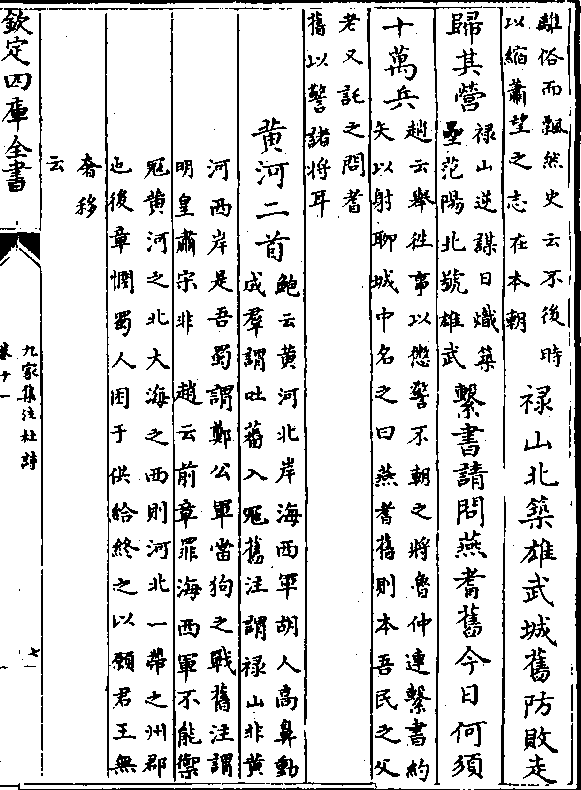 離俗而飄然史云不後時
以縮蕭望之志在本朝
祿山北築雄武城舊防敗走
歸其營
祿山逆謀日熾築
壘范陽北號雄武
繫書請問燕耆舊今日何須
十萬兵
趙云舉徃事以懲警不朝之將魯仲連繫書約
矢以射聊城中名之曰燕耆舊則本吾民之父
老又託之問耆
舊以警諸將耳
黄河二首
鮑云黄河北岸海西軍胡人高鼻動
成羣謂吐蕃入冦舊注謂祿山非黄
河西岸是吾蜀謂鄭公軍當狗之戰舊注謂
明皇肅宗非 趙云前章罪海西軍不能禦
冦黄河之北大海之西則河北一帶之州郡
也後章憫蜀人困于供給終之以願君王無
奢移
云
欽定四庫全書
九家集注杜詩
卷十一
七